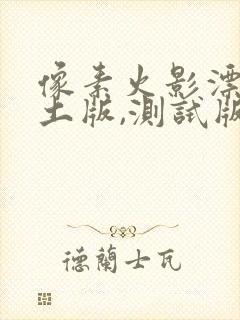 像素火影漂
土版,測試版
德蘭士瓦